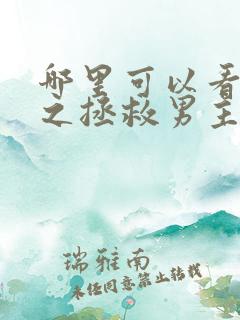 哪里可以看
之拯救男主
瑞雅南
未经同意禁止转载